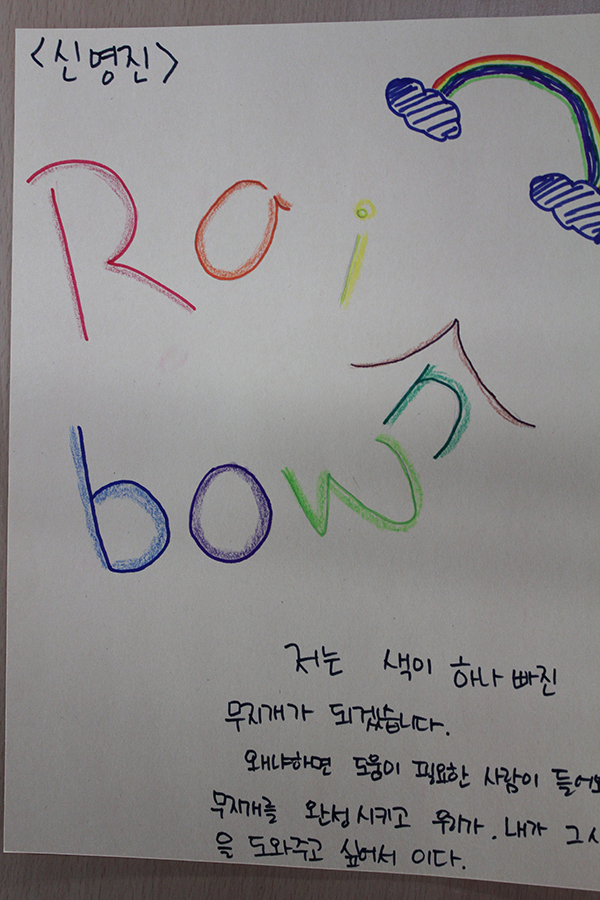 <신명진>
Rai
n
bow
저는 색이 하나 빠진
무지개가 되겠습니다.
왜냐하면 도움이 필요한 사람이 들어
무지개를 완성시키고 우리가. 내가 그
을 도와주고 싶어서 이다.